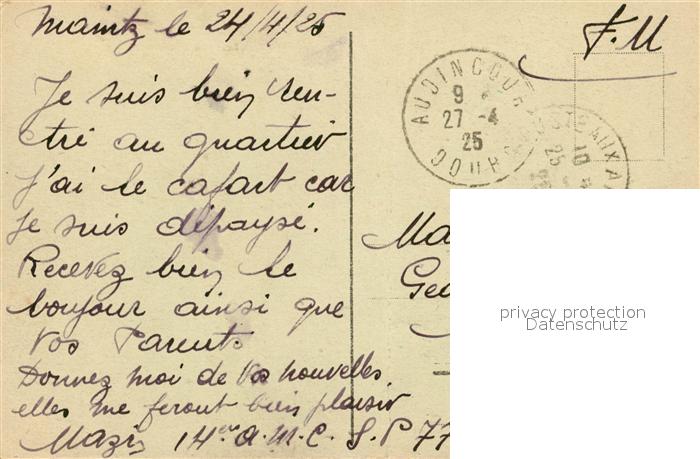 Maintz le 24/4/25
F.M
Je suis bien ren-
tré au quartier
j'ai le cafart car
je suis dépaysé.
Recevez bien le
bonjour ainsi que
Vos Parents
Donnez moi de Vos nouvelles
elles me feront bien plaisir
Mazin 14eme a.M.C. S.P 77
AUDINCOURT
9
27 -4
25
DOUBS
10
25
Ma
Geo
privacy protection
Datenschutz